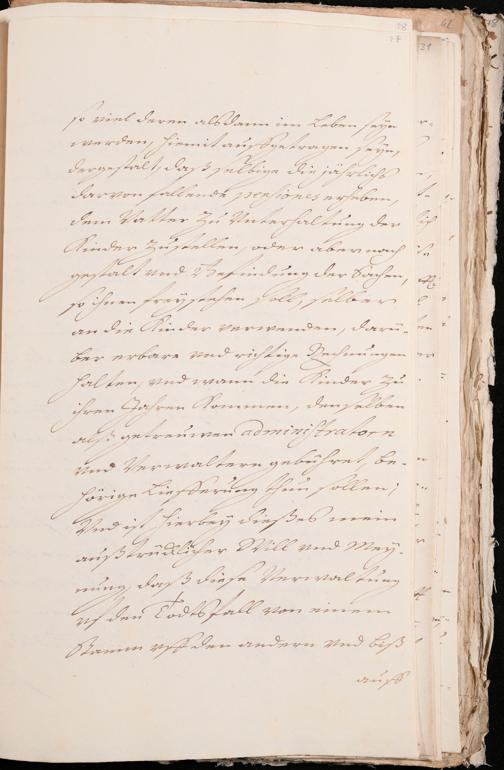 28
27
42
31
so viel deren alsdann im Leben seyn
werden, hiemit auffgetragen seyn,
dergestalt, daß selbige die jährlich
darvon fallende pensiones erheben,
dem Vatter zu Unterhaltung der
Kinder zustellen, oder aber nach
gestalt und Befindung der Sachen,
so ihnen freystehen soll, selber
an die Kinder verwenden, darü-
ber erbare und richtige Rechnungen
halten, und wann die Kinder zu
ihren Jahren kommen, denselben
alß getreuwen administratorn
und Verwaltern gebühret, be-
hörige Liefferung thun sollen;
Und ist hierbey dießes mein
außtrücklicher Will und Mey-
nung, daß diese Verwaltung
uf den Todtsfall von einem
Stamm uff den andern und biß
auff